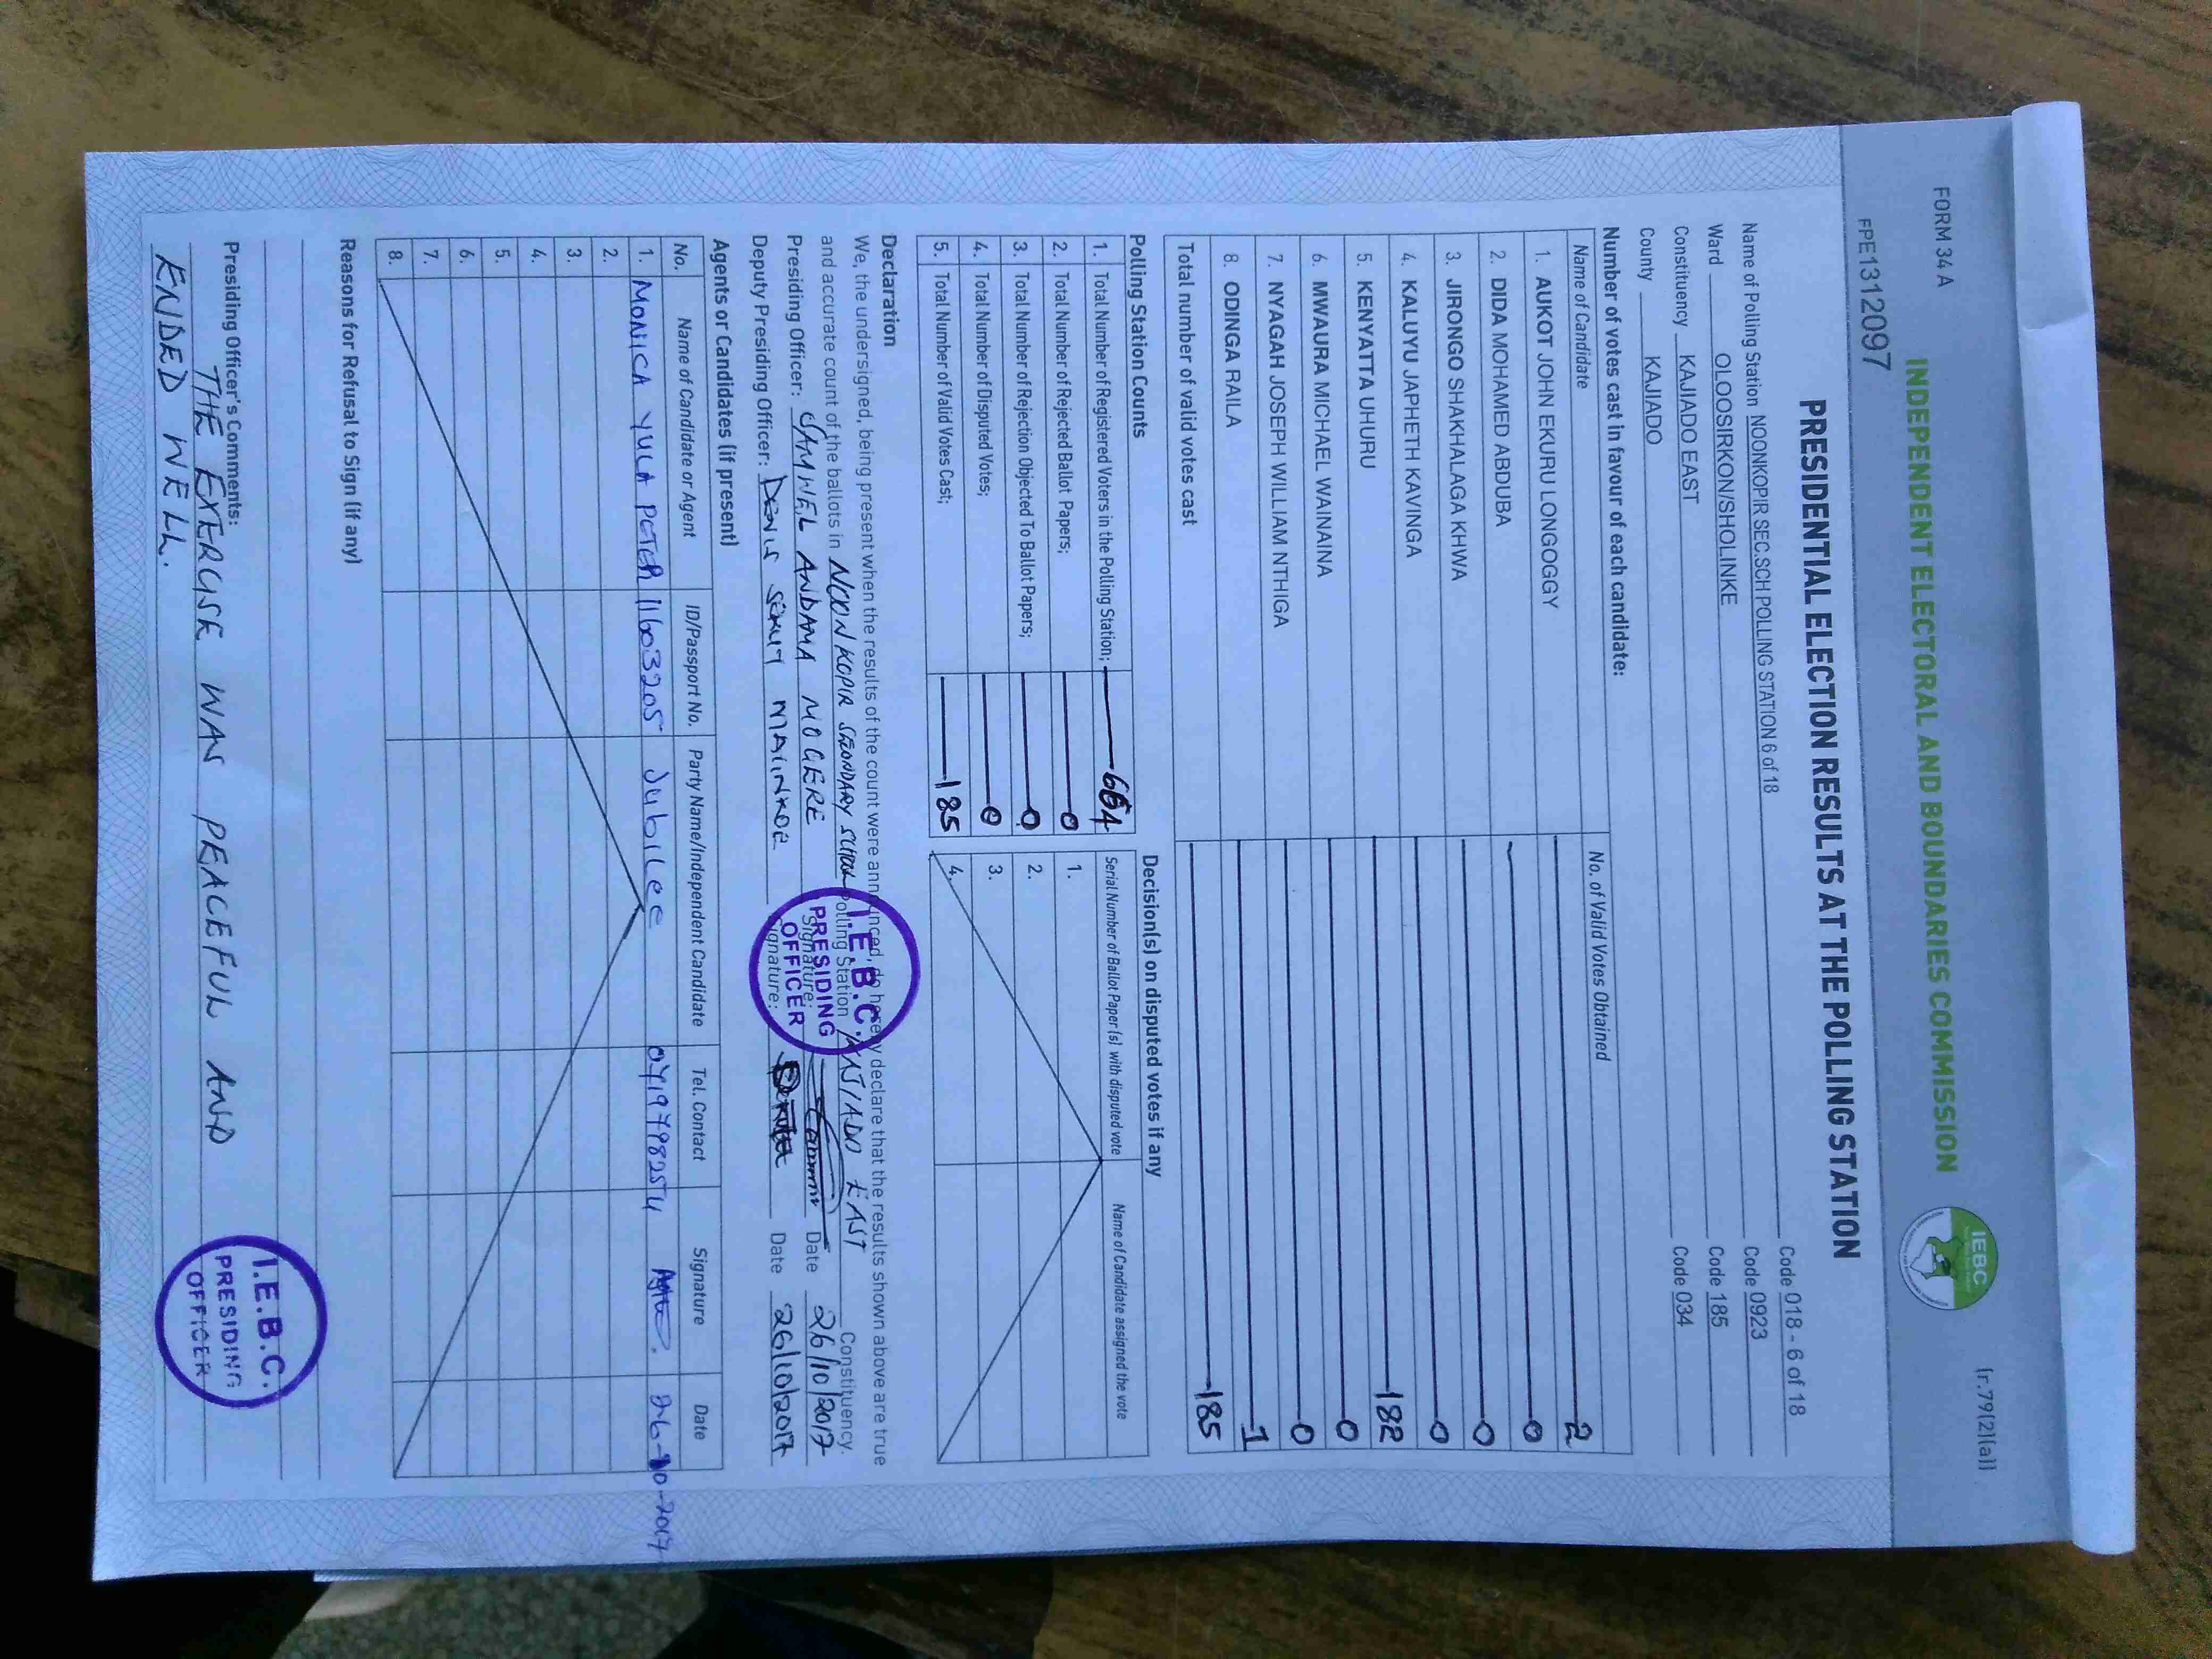 FORM 34 A
[r.79(2)(a)]
INDEPENDENT ELECTORAL AND BOUNDARIES COMMISSION
IEBC
FPE1312097
PRESIDENTIAL ELECTION RESULTS AT THE POLLING STATION
Name of Polling Station NOONKOPIR SEC.SCH POLLING STATION 6 of 18 Code 018 - 6 of 18
Ward OLOOSIRKON/SHOLINKE Code 0923
Constituency KAJIADO EAST Code 185
County KAJIADO Code 034
Number of votes cast in favour of each candidate:
Name of Candidate No. of Valid Votes Obtained
1. AUKOT JOHN EKURU LONGOGGY 2
2. DIDA MOHAMED ABDUBA 0
3. JIRONGO SHAKHALAGA KHWA 0
4. KALUYU JAPHETH KAVINGA 0
5. KENYATTA UHURU 182
6. MWAURA MICHAEL WAINAINA 0
7. NYAGAH JOSEPH WILLIAM NTHIGA 0
8. ODINGA RAILA 1
Total number of valid votes cast 185
Polling Station Counts
1. Total Number of Registered Voters in the Polling Station;
2. Total Number of Rejected Ballot Papers; 0
3. Total Number of Rejection Objected To Ballot Papers; 0
4. Total Number of Disputed Votes; 0
5. Total Number of Valid Votes Cast; 185
Decision(s) on disputed votes if any
Serial Number of Ballot Paper(s) with disputed vote Name of Candidate assigned the vote
1.
2.
3.
4.
Declaration
We, the undersigned, being present when the results of the count were announced, do hereby declare that the results shown above are true
and accurate count of the ballots in NOONKOPIR SECONDARY SCHOOL Polling Station KAJIADO EAST Constituency.
Presiding Officer: SAMWEL ANDAMA MOGERE Signature: Date 26/10/2017
Deputy Presiding Officer: DENIS Signature: Date 26/10/2017
I.E.B.C.
PRESIDING
OFFICER
Agents or Candidates (if present)
No. Name of Candidate or Agent ID/Passport No. Party Name/Independent Candidate Tel. Contact Signature Date
1. MONICA YULA PETER 11603205 Jubilee 0719798254 26-10-2017
2.
3.
4.
5.
6.
7.
8.
Reasons for Refusal to Sign (if any)
Presiding Officer's Comments:
THE EXERCISE WAS PEACEFUL AND
ENDED WELL.
I.E.B.C.
PRESIDING
OFFICER